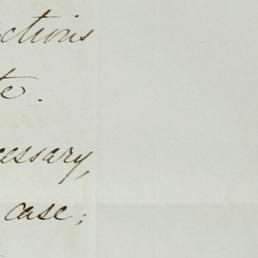 ctions
te.
cessary,
case;